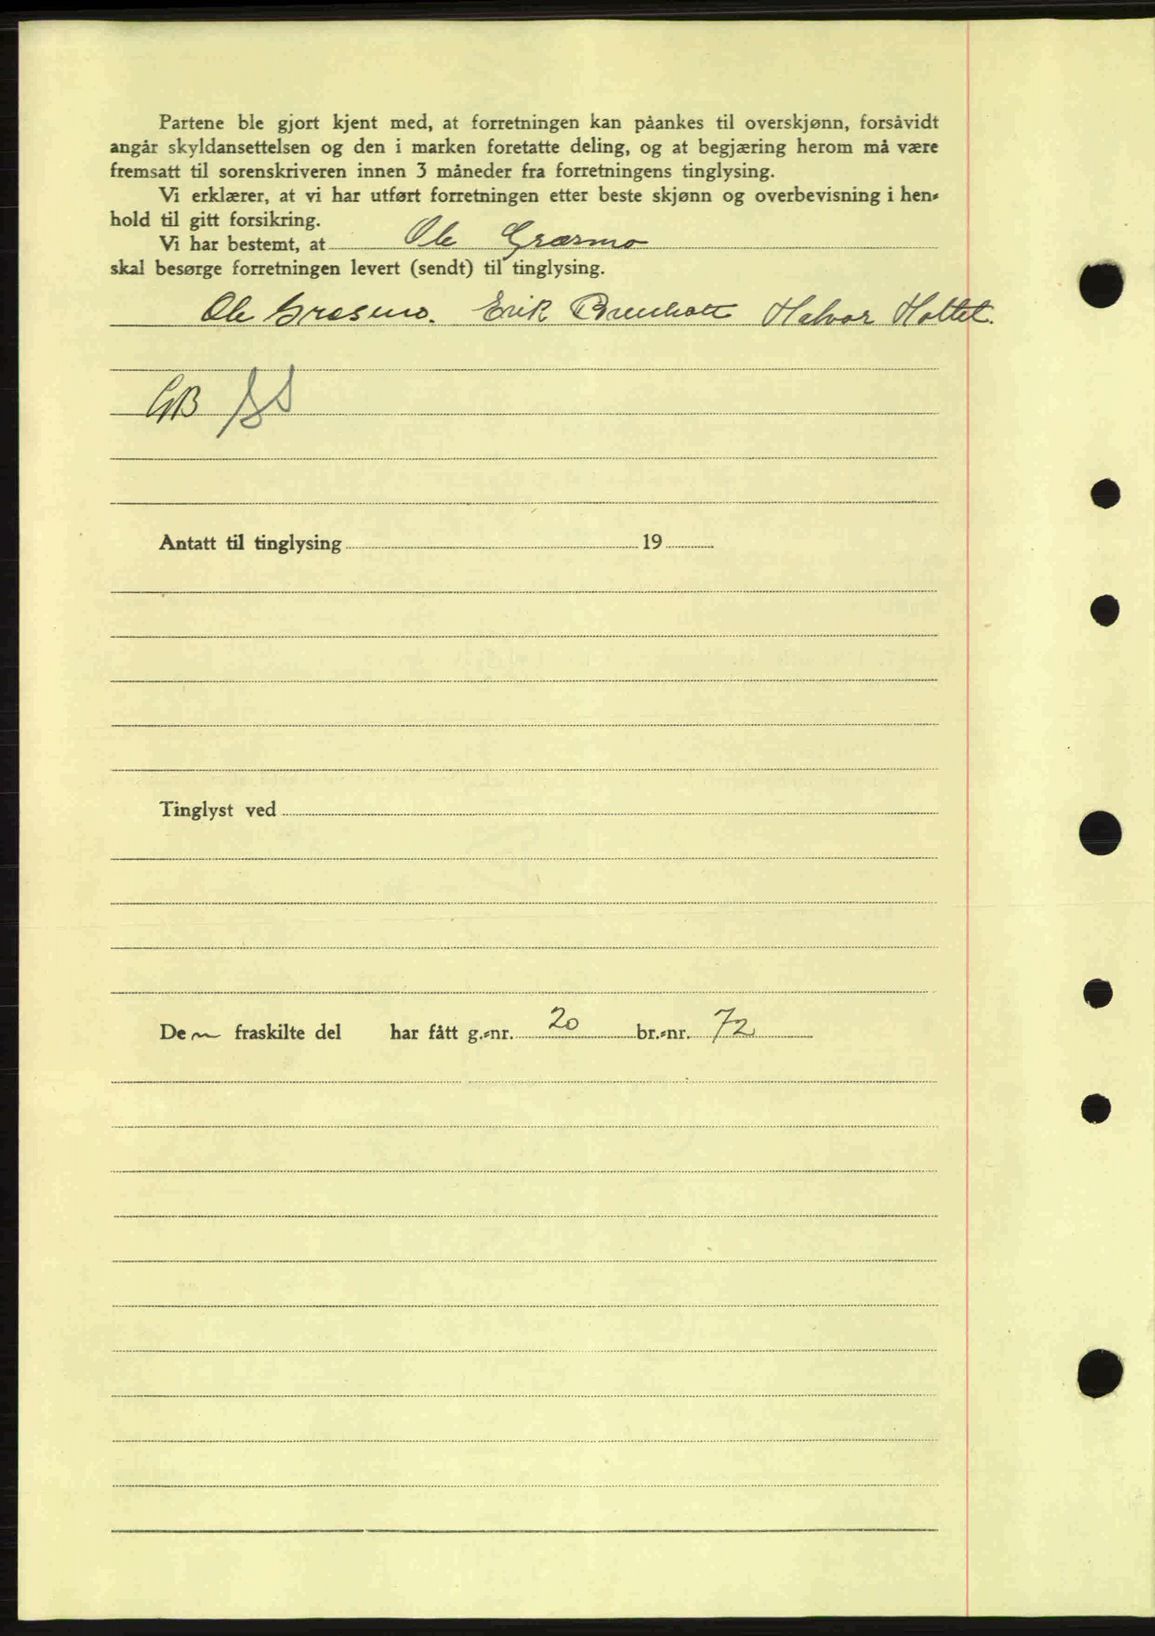 Partene ble gjort kjent med, at forretningen kan påankes til overskjønn, forsåvidt
angår skyldansettelsen og den i marken foretatte deling, og at begjæring herom må være
fremsatt til sorenskriveren innen 3 måneder fra forretningens tinglysing.
Vi erklærer, at vi har utført forretningen etter beste skjønn og overbevisning i hen-
hold til gitt forsikring.
Vi har bestemt, at Ole Græsmo
skal besørge forretningen levert (sendt) til tinglysing.
Ole Græsmo. Erik Halvor Holtet.
GB
Antatt til tinglysing 19
Tinglyst ved
Den fraskilte del har fått g.-nr. 20 br.-nr. 72